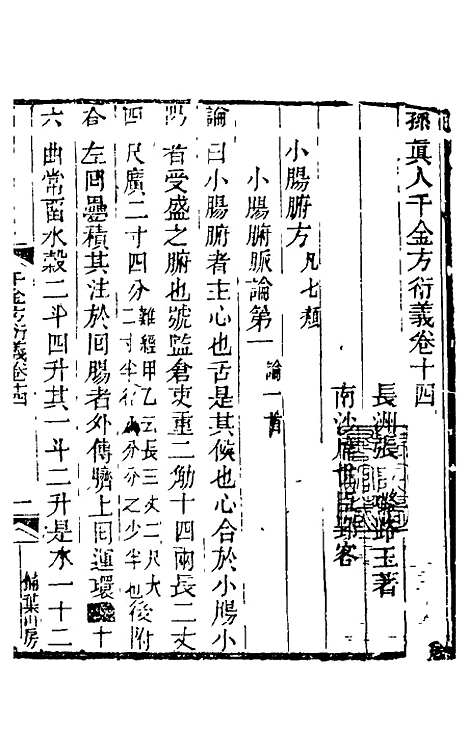 孫眞人千金方衍義卷十四
長洲張璐路玉著
南沙席世臣郢客
小腸腑方 凡七類
小腸腑脈論第一 論一首
論曰小腸腑者主心也舌是其候也心合於小腸小
腸者受盛之腑也號監倉吏重二觔十四兩長二丈
四尺廣二寸四分 難經甲乙云長三丈二尺大二寸半徑八分分之少半也 後附
脊左回疊積其注於回腸者外傳臍上囘運環十
六曲常畱水穀二斗四升其一斗二升是水一十二
千金方衍義卷十四
一
掃葉山房